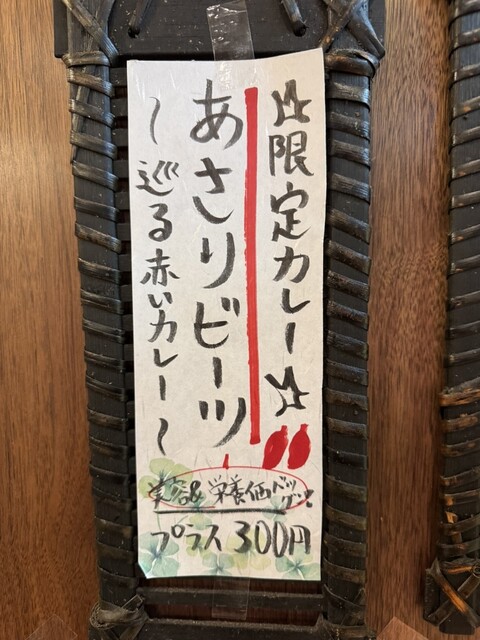 ☆限定カレー☆
あさりビーツ
〜巡る赤いカレー〜
栄養価バツグン
プラス300円